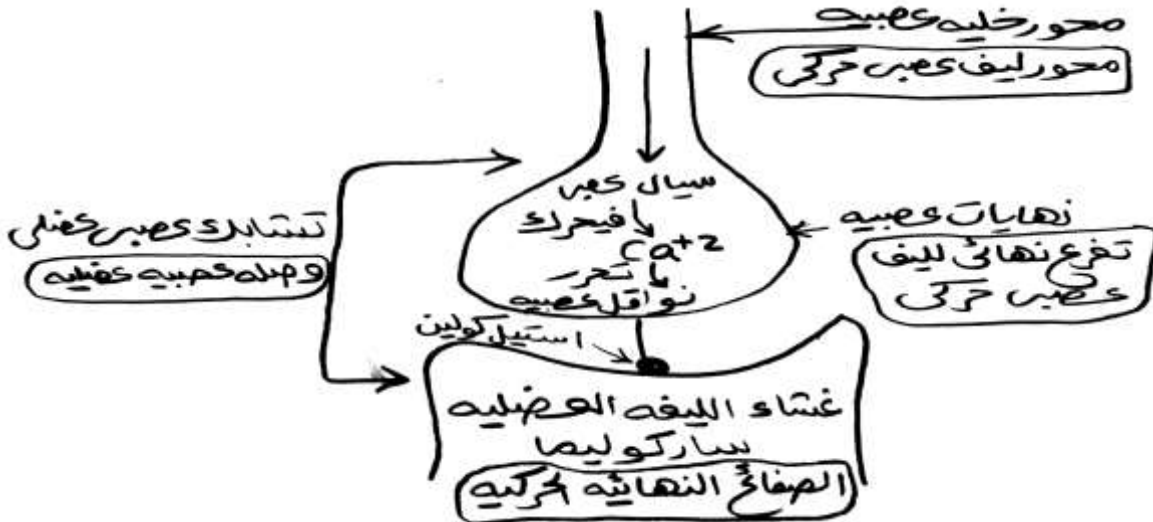 محور خليه عصبيه
محور ليف عصبى حركى
سيال عصبى
فيحرك
Ca+2
تحرر
نواقل عصبيه
نهايات عصبيه
تفرع نهائى لليف
عصبى حركى
تشابك عصبى عضلى
وصله عصبيه عضليه
استيل كولين
غشاء الليفه العضليه
ساركوليما
الصفائح النهائيه الحركيه